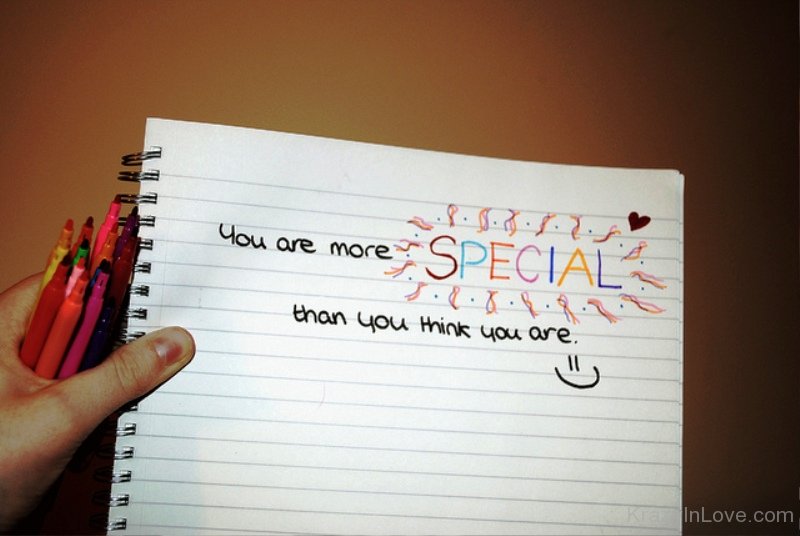 You are more SPECIAL
than you think you are.
InLove.com